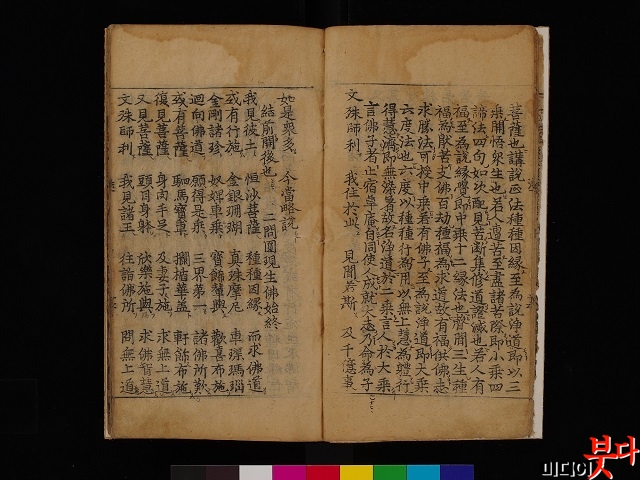 菩薩也講說正法種種因緣至為說淨道即以三
乘開悟衆生也若人遭苦至盡諸苦際即小乘四
諦法四句如次配見苦斷集修道證滅也若人有
福至為說緣覺即中乘十二緣法也嘗聞三生種
福為若文佛百劫種福為求道故有福供佛志
求勝法可授中乘若有佛子至為說淨道即大乘
六度法也六度以種種行為用以無上慧為體行
得慧濟即無染著故名淨道於二乘言人於大乘
言佛子者止宿草庵自同使人成就大志乃命為子
文殊師利 我住於此 見聞若斯 及千億事
如是衆多 今當略說
結前開後也 二問圓現生佛始終
我見彼土 恒沙菩薩 種種因緣 而求佛道
或有行施 金銀珊瑚 真珠摩尼 車璖瑪瑙
金剛諸珍 奴婢車乘 寶飾輦輿 歡喜布施
迴向佛道 願得是乘 三界第一 諸佛所歎
或有菩薩 駟馬寶車 欄楯華蓋 軒飾布施
復見菩薩 身肉手足 及妻子施 求無上道
又見菩薩 頭目身躰 欣樂施與 求佛智慧
文殊師利 我見諸王 往詣佛所 問無上道
미디어붓다